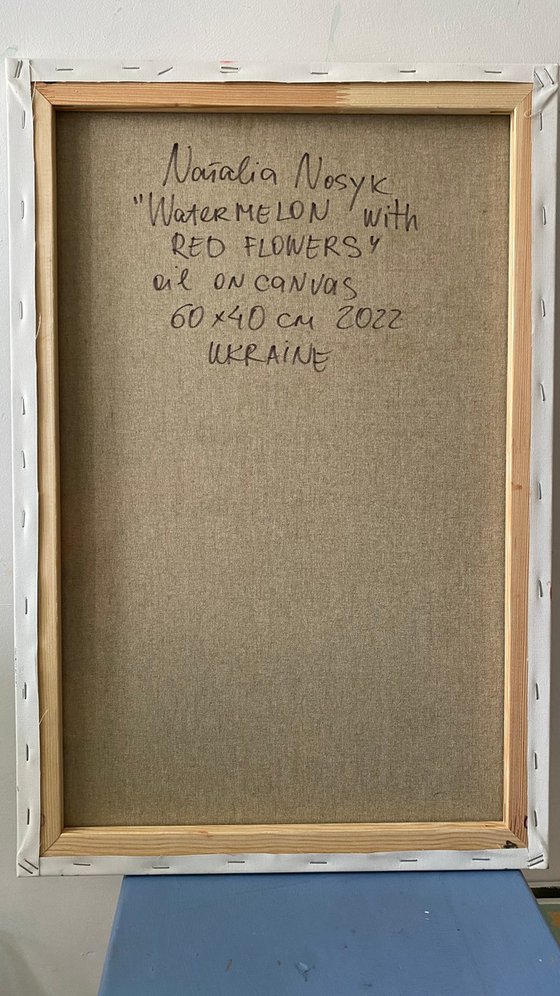 Natalia Nosyk
"WaterMELON with
RED FLOWERS"
oil ON CANVAS
60x40 cm 2022
UKRAINE